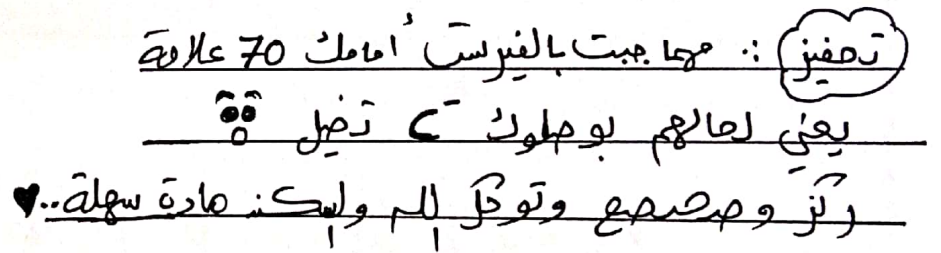 تحفيز :. مهما جبت بالفيرست أمامك 70 علامة
يعني لحالهم بوصلوك C- تخيل
ركز وصحصح وتوكل لله والسكند مادة سهلة..♥